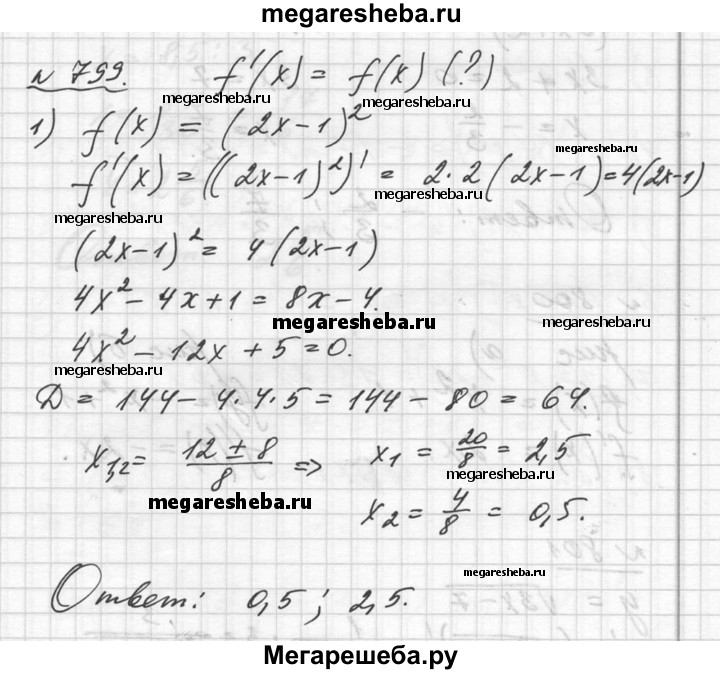 megaresheba.ru
№ 799. f'(x) = f(x) (?)
megaresheba.ru megaresheba.ru
1) f(x) = (2x-1)²
megaresheba.ru
f'(x) = ((2x-1)²)' = 2·2(2x-1) = 4(2x-1)
megaresheba.ru
megaresheba.ru
(2x-1)² = 4(2x-1)
4x² - 4x + 1 = 8x - 4.
megaresheba.ru megaresheba.ru
4x² - 12x + 5 = 0.
megaresheba.ru
D = 144 - 4·4·5 = 144 - 80 = 64.
x₁,₂ = (12 ± 8)/8 => x₁ = 20/8 = 2,5
megaresheba.ru
megaresheba.ru
x₂ = 4/8 = 0,5.
megaresheba.ru
Ответ: 0,5; 2,5.
Мегарешеба.ру